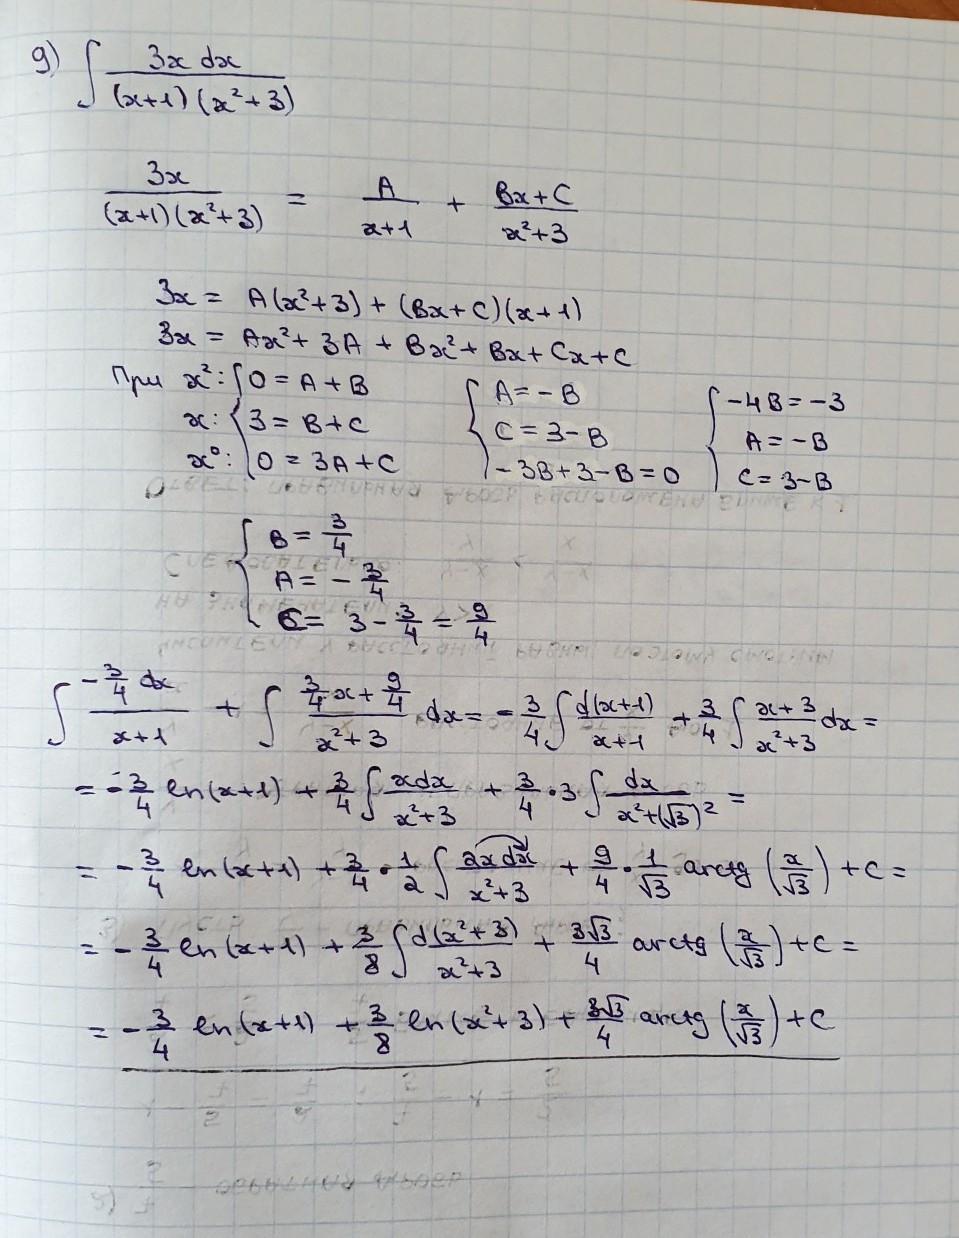 9) ∫ 3x dx / (x+1)(x²+3)
3x / (x+1)(x²+3) = A / x+1 + Bx+C / x²+3
3x = A(x²+3) + (Bx+C)(x+1)
3x = Ax² + 3A + Bx² + Bx + Cx + C
При x²: { 0 = A+B { A = -B { -4B = -3
x: 3 = B+C C = 3-B A = -B
x⁰: 0 = 3A+C -3B+3-B=0 C = 3-B
{ B = 3/4
A = - 3/4
C = 3 - 3/4 = 9/4
∫ -3/4 dx / x+1 + ∫ 3/4 x + 9/4 / x²+3 dx = - 3/4 ∫ d(x+1) / x+1 + 3/4 ∫ x+3 / x²+3 dx =
= - 3/4 ln(x+1) + 3/4 ∫ xdx / x²+3 + 3/4 · 3 ∫ dx / x²+(√3)² =
= - 3/4 ln(x+1) + 3/4 · 1/2 ∫ 2x dx / x²+3 + 9/4 · 1/√3 arctg (x/√3) + C =
= - 3/4 ln(x+1) + 3/8 ∫ d(x²+3) / x²+3 + 3√3/4 arctg (x/√3) + C =
= - 3/4 ln(x+1) + 3/8 ln(x²+3) + 3√3/4 arctg (x/√3) + C